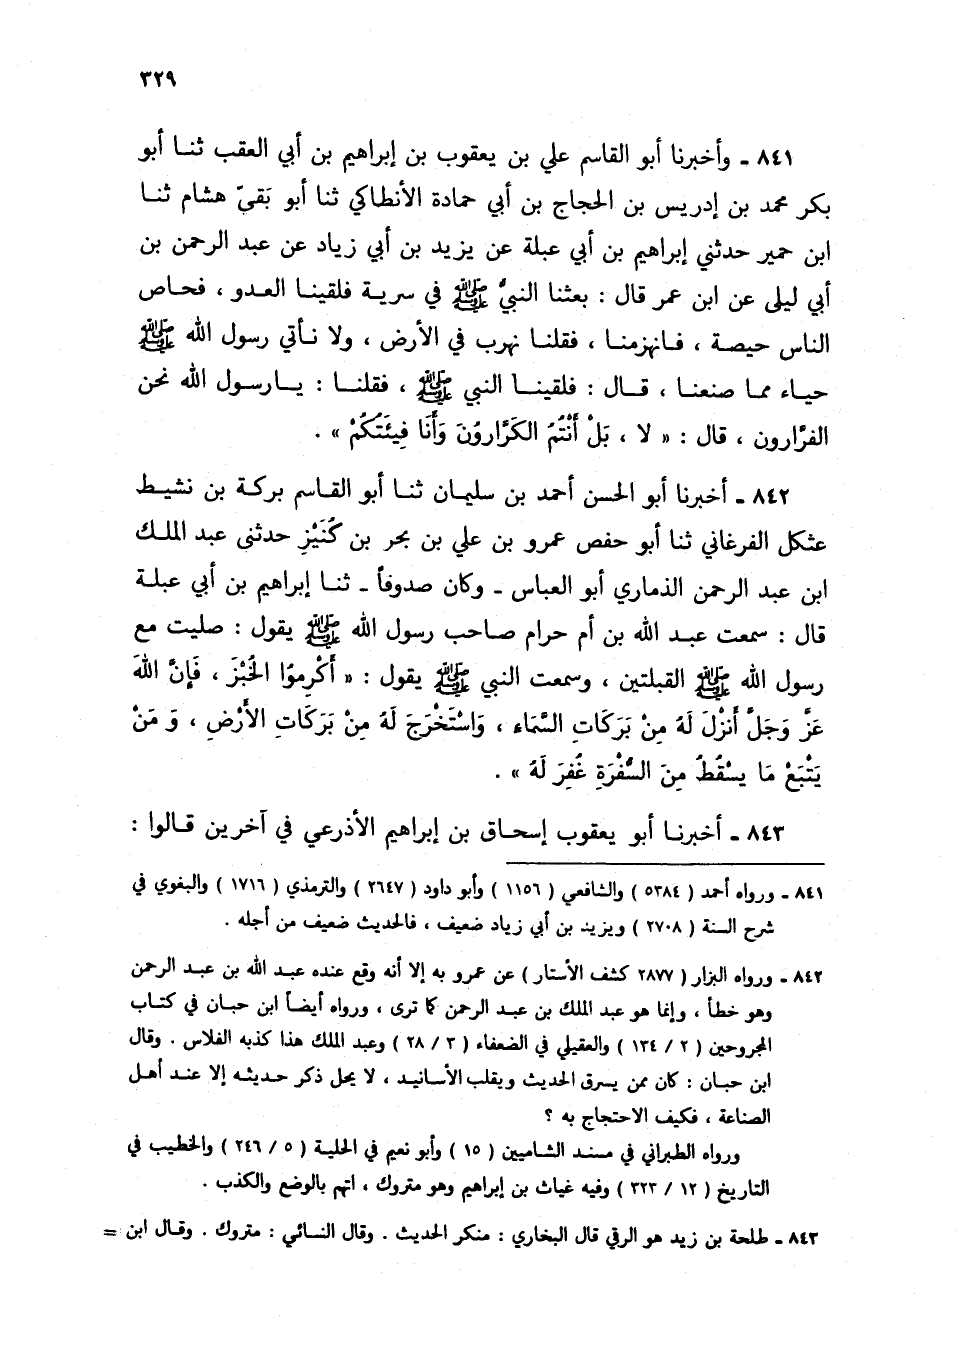 ٣٢٩
٨٤١ ـ وأخبرنا أبو القاسم علي بن يعقوب بن إبراهيم بن أبي العقب ثنا أبو
بكر محمد بن إدريس بن الحجاج بن أبي حمادة الأنطاكي ثنا أبو بَقيّ هشام ثنا
ابن حمير حدثني إبراهيم بن أبي عبلة عن يزيد بن أبي زياد عن عبد الرحمن بن
أبي ليلى عن ابن عمر قال : بعثنا النبيُّ ﷺ في سرية فلقينا العدو ، فحاص
الناس حيصة ، فانهزمنا ، فقلنا نهرب في الأرض ، ولا نأتي رسول الله ﷺ
حياء مما صنعنا ، قال : فلقينا النبي ﷺ ، فقلنا : يارسول الله نحن
الفرَّارون ، قال : « لا ، بَلْ أَنْتُمُ الكَرَّارُونَ وَأَنَا فِيئَتُكُمْ » .
٨٤٢ ـ أخبرنا أبو الحسن أحمد بن سليمان ثنا أبو القاسم بركة بن نشيط
عثكل الفرغاني ثنا أبو حفص عمرو بن علي بن بحر بن كُنَيْزٍ حدثنى عبد الملك
ابن عبد الرحمن الذماري أبو العباس ـ وكان صدوقاً ـ ثنا إبراهيم بن أبي عبلة
قال : سمعت عبد الله بن أم حرام صاحب رسول الله ﷺ يقول : صليت مع
رسول الله ﷺ القبلتين ، وسمعت النبي ﷺ يقول : « أَكْرِمُوا الخُبْزَ ، فَإِنَّ اللهَ
عَزَّ وَجَلَّ أَنْزَلَ لَهُ مِنْ بَرَكَاتِ السَّمَاءِ ، وَاسْتَخْرَجَ لَهُ مِنْ بَرَكَاتِ الأَرْضِ ، وَمَنْ
يَتْبَعْ مَا يسْقُطُ مِنَ السُّفْرَةِ غُفِرَ لَهُ » .
٨٤٣ ـ أخبرنا أبو يعقوب إسحاق بن إبراهيم الأذرعي في آخرين قالوا :
٨٤١ ـ ورواه أحمد ( ٥٣٨٤ ) والشافعي ( ١١٥٦ ) وأبو داود ( ٢٦٤٧ ) والترمذي ( ١٧١٦ ) والبغوي في
شرح السنة ( ٢٧٠٨ ) ويزيد بن أبي زياد ضعيف ، فالحديث ضعيف من أجله .
٨٤٢ ـ ورواه البزار ( ٢٨٧٧ كشف الأستار ) عن عمرو به إلا أنه وقع عنده عبد الله بن عبد الرحمن
وهو خطأ ، وإنما هو عبد الملك بن عبد الرحمن كما ترى ، ورواه أيضاً ابن حبان في كتاب
المجروحين ( ٢ / ١٣٤ ) والعقيلي في الضعفاء ( ٣ / ٢٨ ) وعبد الملك هذا كذبه الفلاس . وقال
ابن حبان : كان ممن يسرق الحديث ويقلب الأسانيد ، لا يحل ذكر حديثه إلا عند أهل
الصناعة ، فكيف الاحتجاج به ؟
ورواه الطبراني في مسند الشاميين ( ١٥ ) وأبو نعيم في الحلية ( ٥ / ٢٤٦ ) والخطيب في
التاريخ ( ١٢ / ٣٢٣ ) وفيه غياث بن إبراهيم وهو متروك ، اتهم بالوضع والكذب .
٨٤٣ ـ طلحة بن زيد هو الرقي قال البخاري : منكر الحديث . وقال النسائي : متروك . وقال ابن =